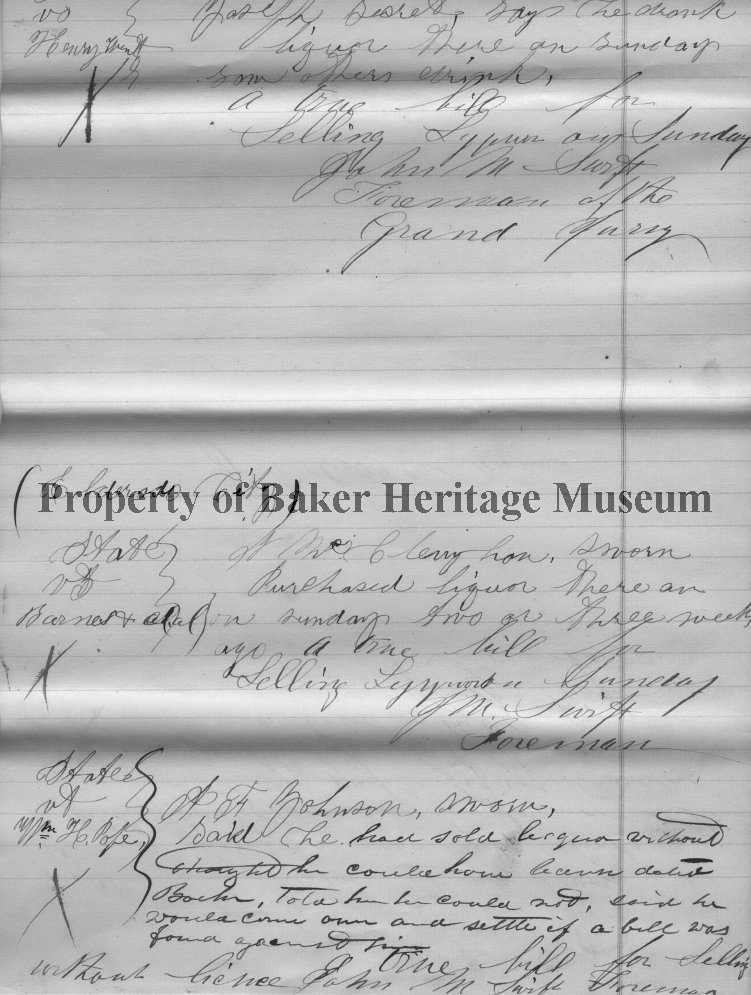 vs Joseph says he drank
Henry Wendt liquor there on Sunday
som others drink,
A true bill for
Selling Lyquor on Sunday
John M Swift
Foreman of the
Grand Jury
City)
Property of Baker Heritage Museum
State Mc Clenghon, sworn
vs Purchased liquor there an
Barnes & al (al) on sunday two or three weeks
ago A true bill for
Selling Lyquor Sunday
J M. Swift
Foreman
State
vs A F Johnson, sworn,
Wm H. Pope, said he had sold liquor without
he could have been
told him he could not, said he
would come over and settle if a bill was
found against him
True bill for Selling
without licence John M Swift Foreman